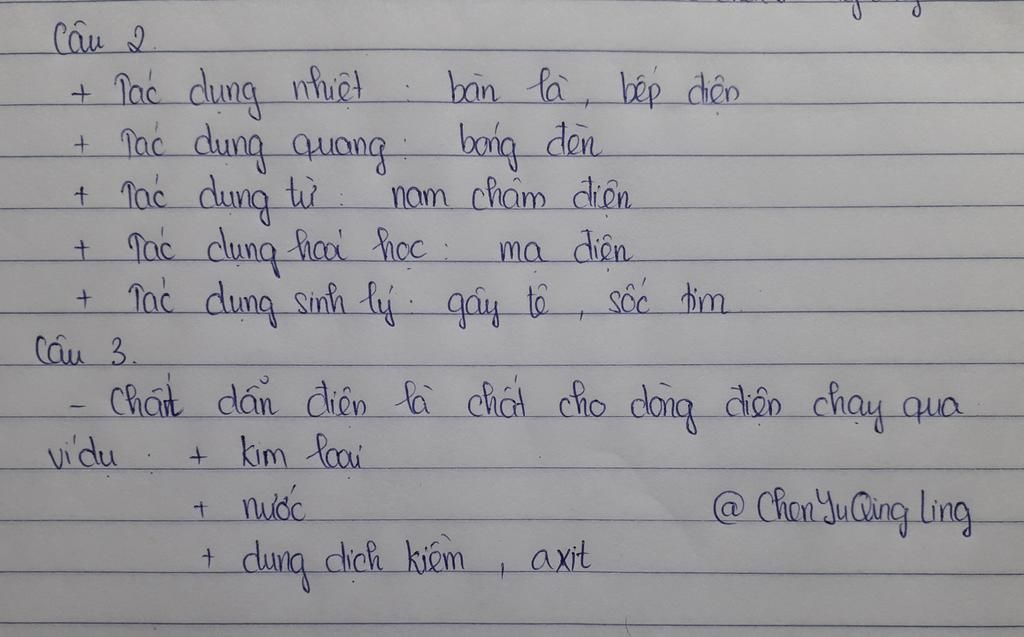 Câu 2.
+ Tác dụng nhiệt : bàn là, bếp điện
+ Tác dụng quang : bóng đèn
+ Tác dụng từ : nam châm điện
+ Tác dụng hoá học : mạ điện
+ Tác dụng sinh lý : gây tê, sốc tim
Câu 3.
- Chất dẫn điện là chất cho dòng điện chạy qua
ví dụ : + kim loại
+ nước
@ ChenYuQing Ling
+ dung dịch kiềm, axit